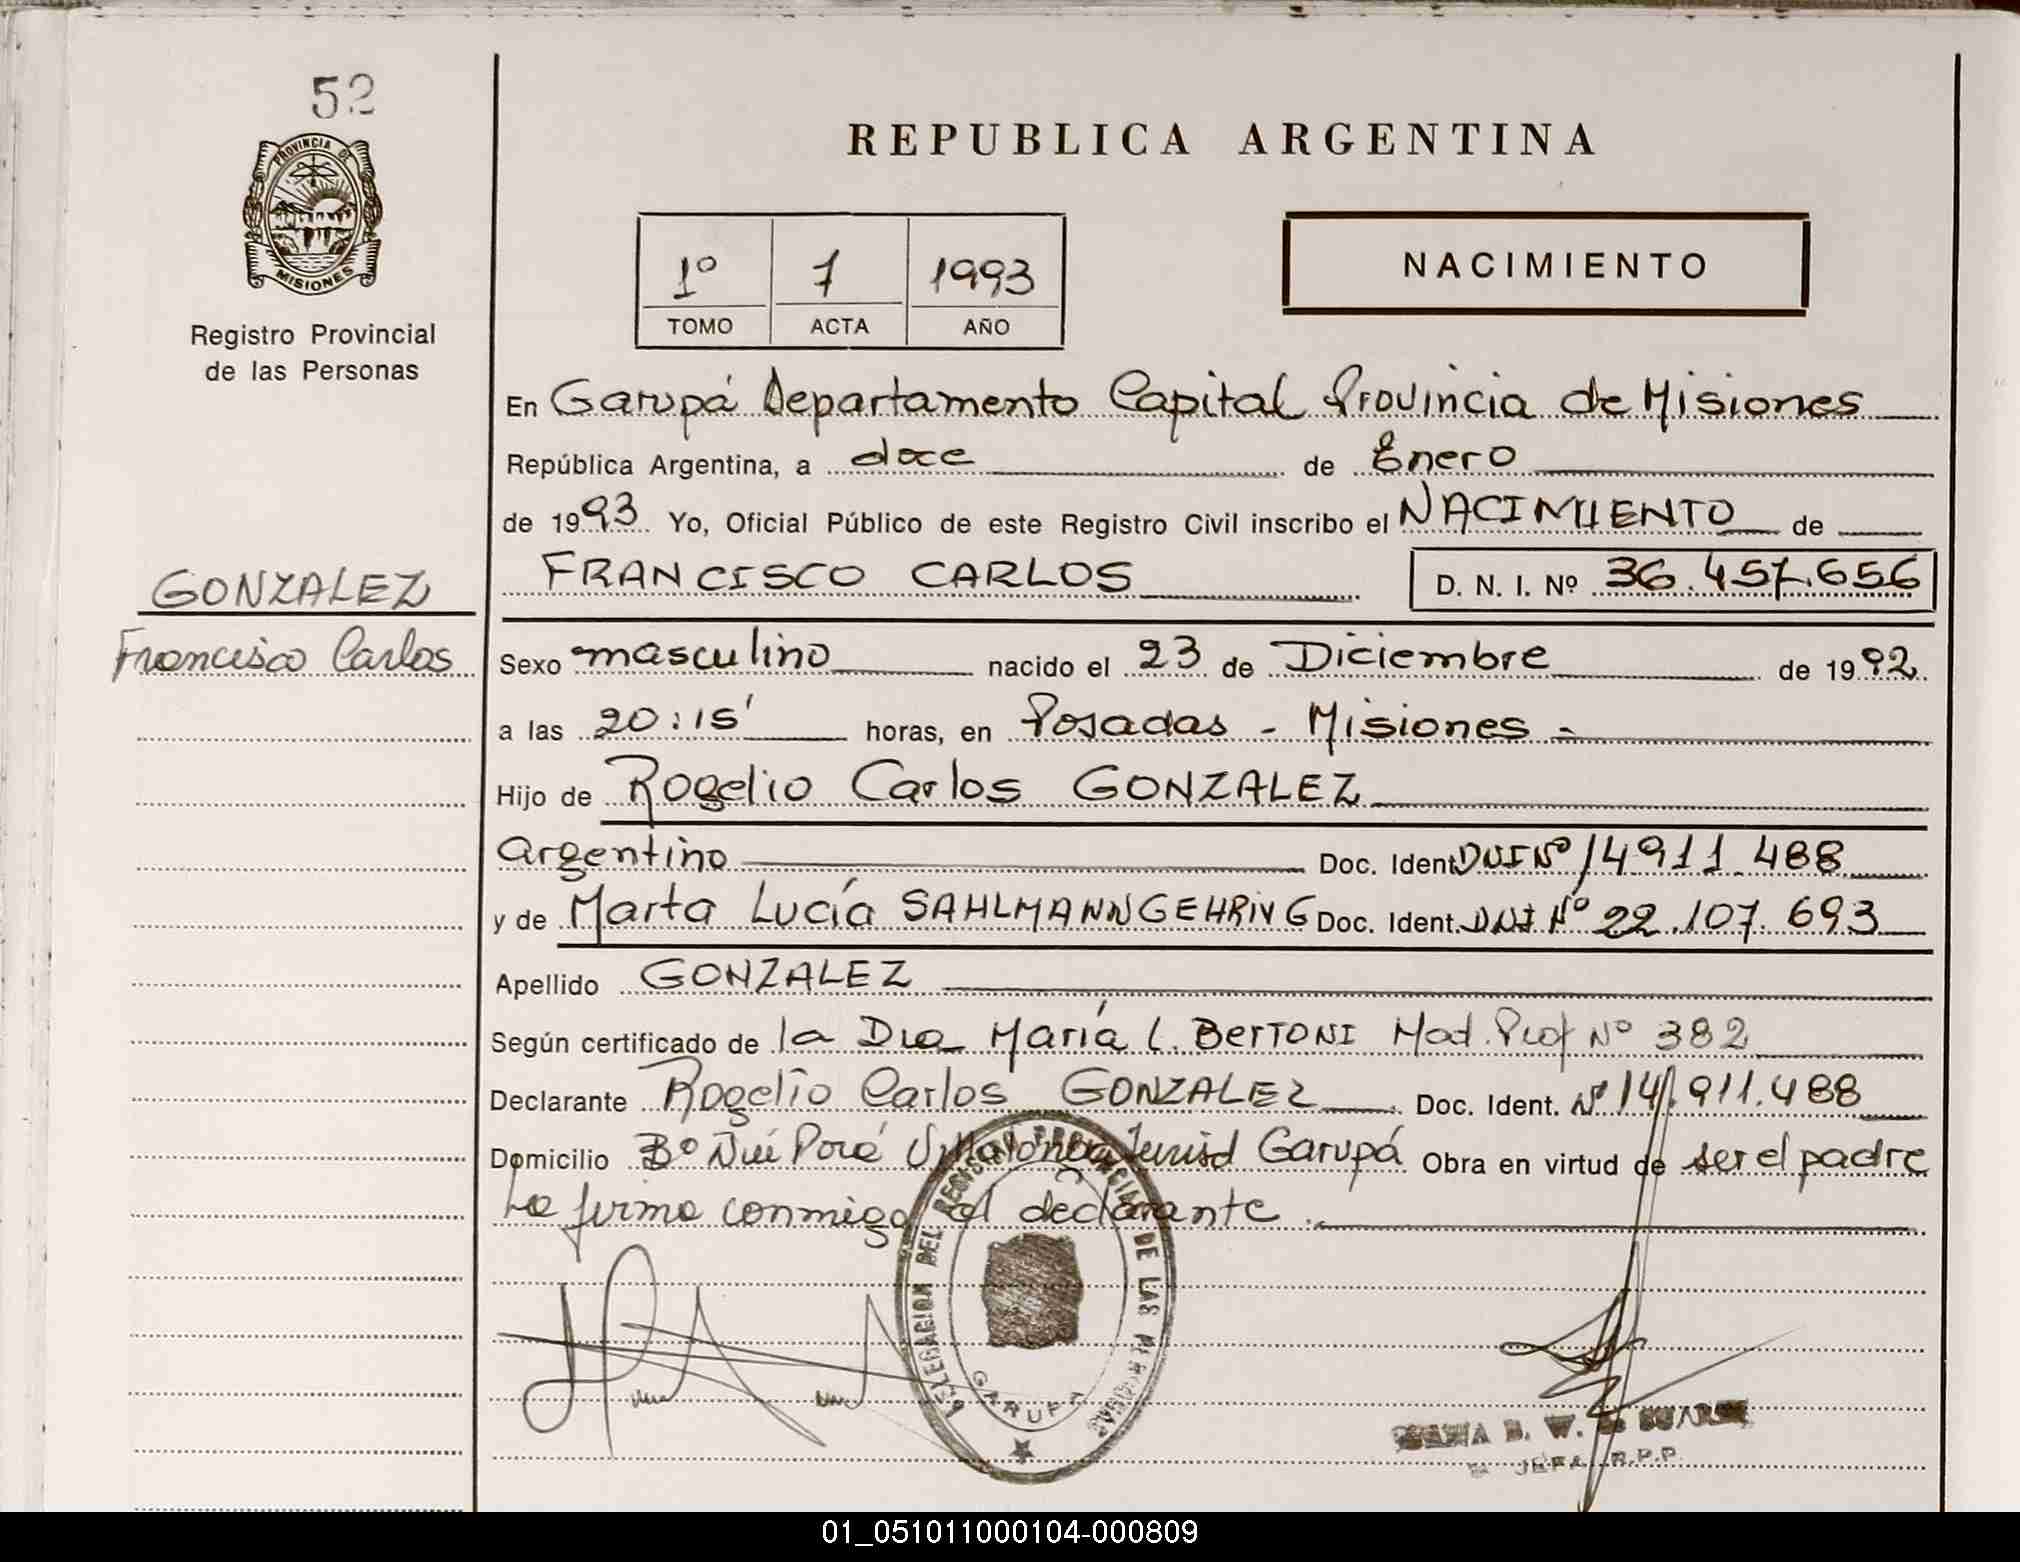 52
PROVINCIA DE
MISIONES
Registro Provincial
de las Personas
REPUBLICA ARGENTINA
1º 7 1993
TOMO ACTA AÑO
NACIMIENTO
En Garupá Departamento Capital Provincia de Misiones
República Argentina, a doce de Enero
de 1993 Yo, Oficial Público de este Registro Civil inscribo el NACIMIENTO de
FRANCISCO CARLOS D. N. I. Nº 36.457.656
GONZALEZ
Francisco Carlos
Sexo masculino nacido el 23 de Diciembre de 1992
a las 20:15' horas, en Posadas - Misiones -
Hijo de Rogelio Carlos GONZALEZ
Argentino Doc. Ident DNI Nº 14911.488
y de Marta Lucía SAHLMANNGEHRING Doc. Ident. DNI Nº 22.107.693
Apellido GONZALEZ
Según certificado de la Dra María L. BERTONI Mad. Prof Nº 382
Declarante Rogelio Carlos GONZALEZ Doc. Ident. Nº 14.911.488
Domicilio Bº Ñu Porá Villalonga Jurisd Garupá Obra en virtud de ser el padre
La firma conmigo el declarante.
DELEGACION DEL REGISTRO PROVINCIAL DE LAS PERSONAS
GARUPA
B. W. de SUAREZ
JEFA R.P.P.
01_051011000104-000809